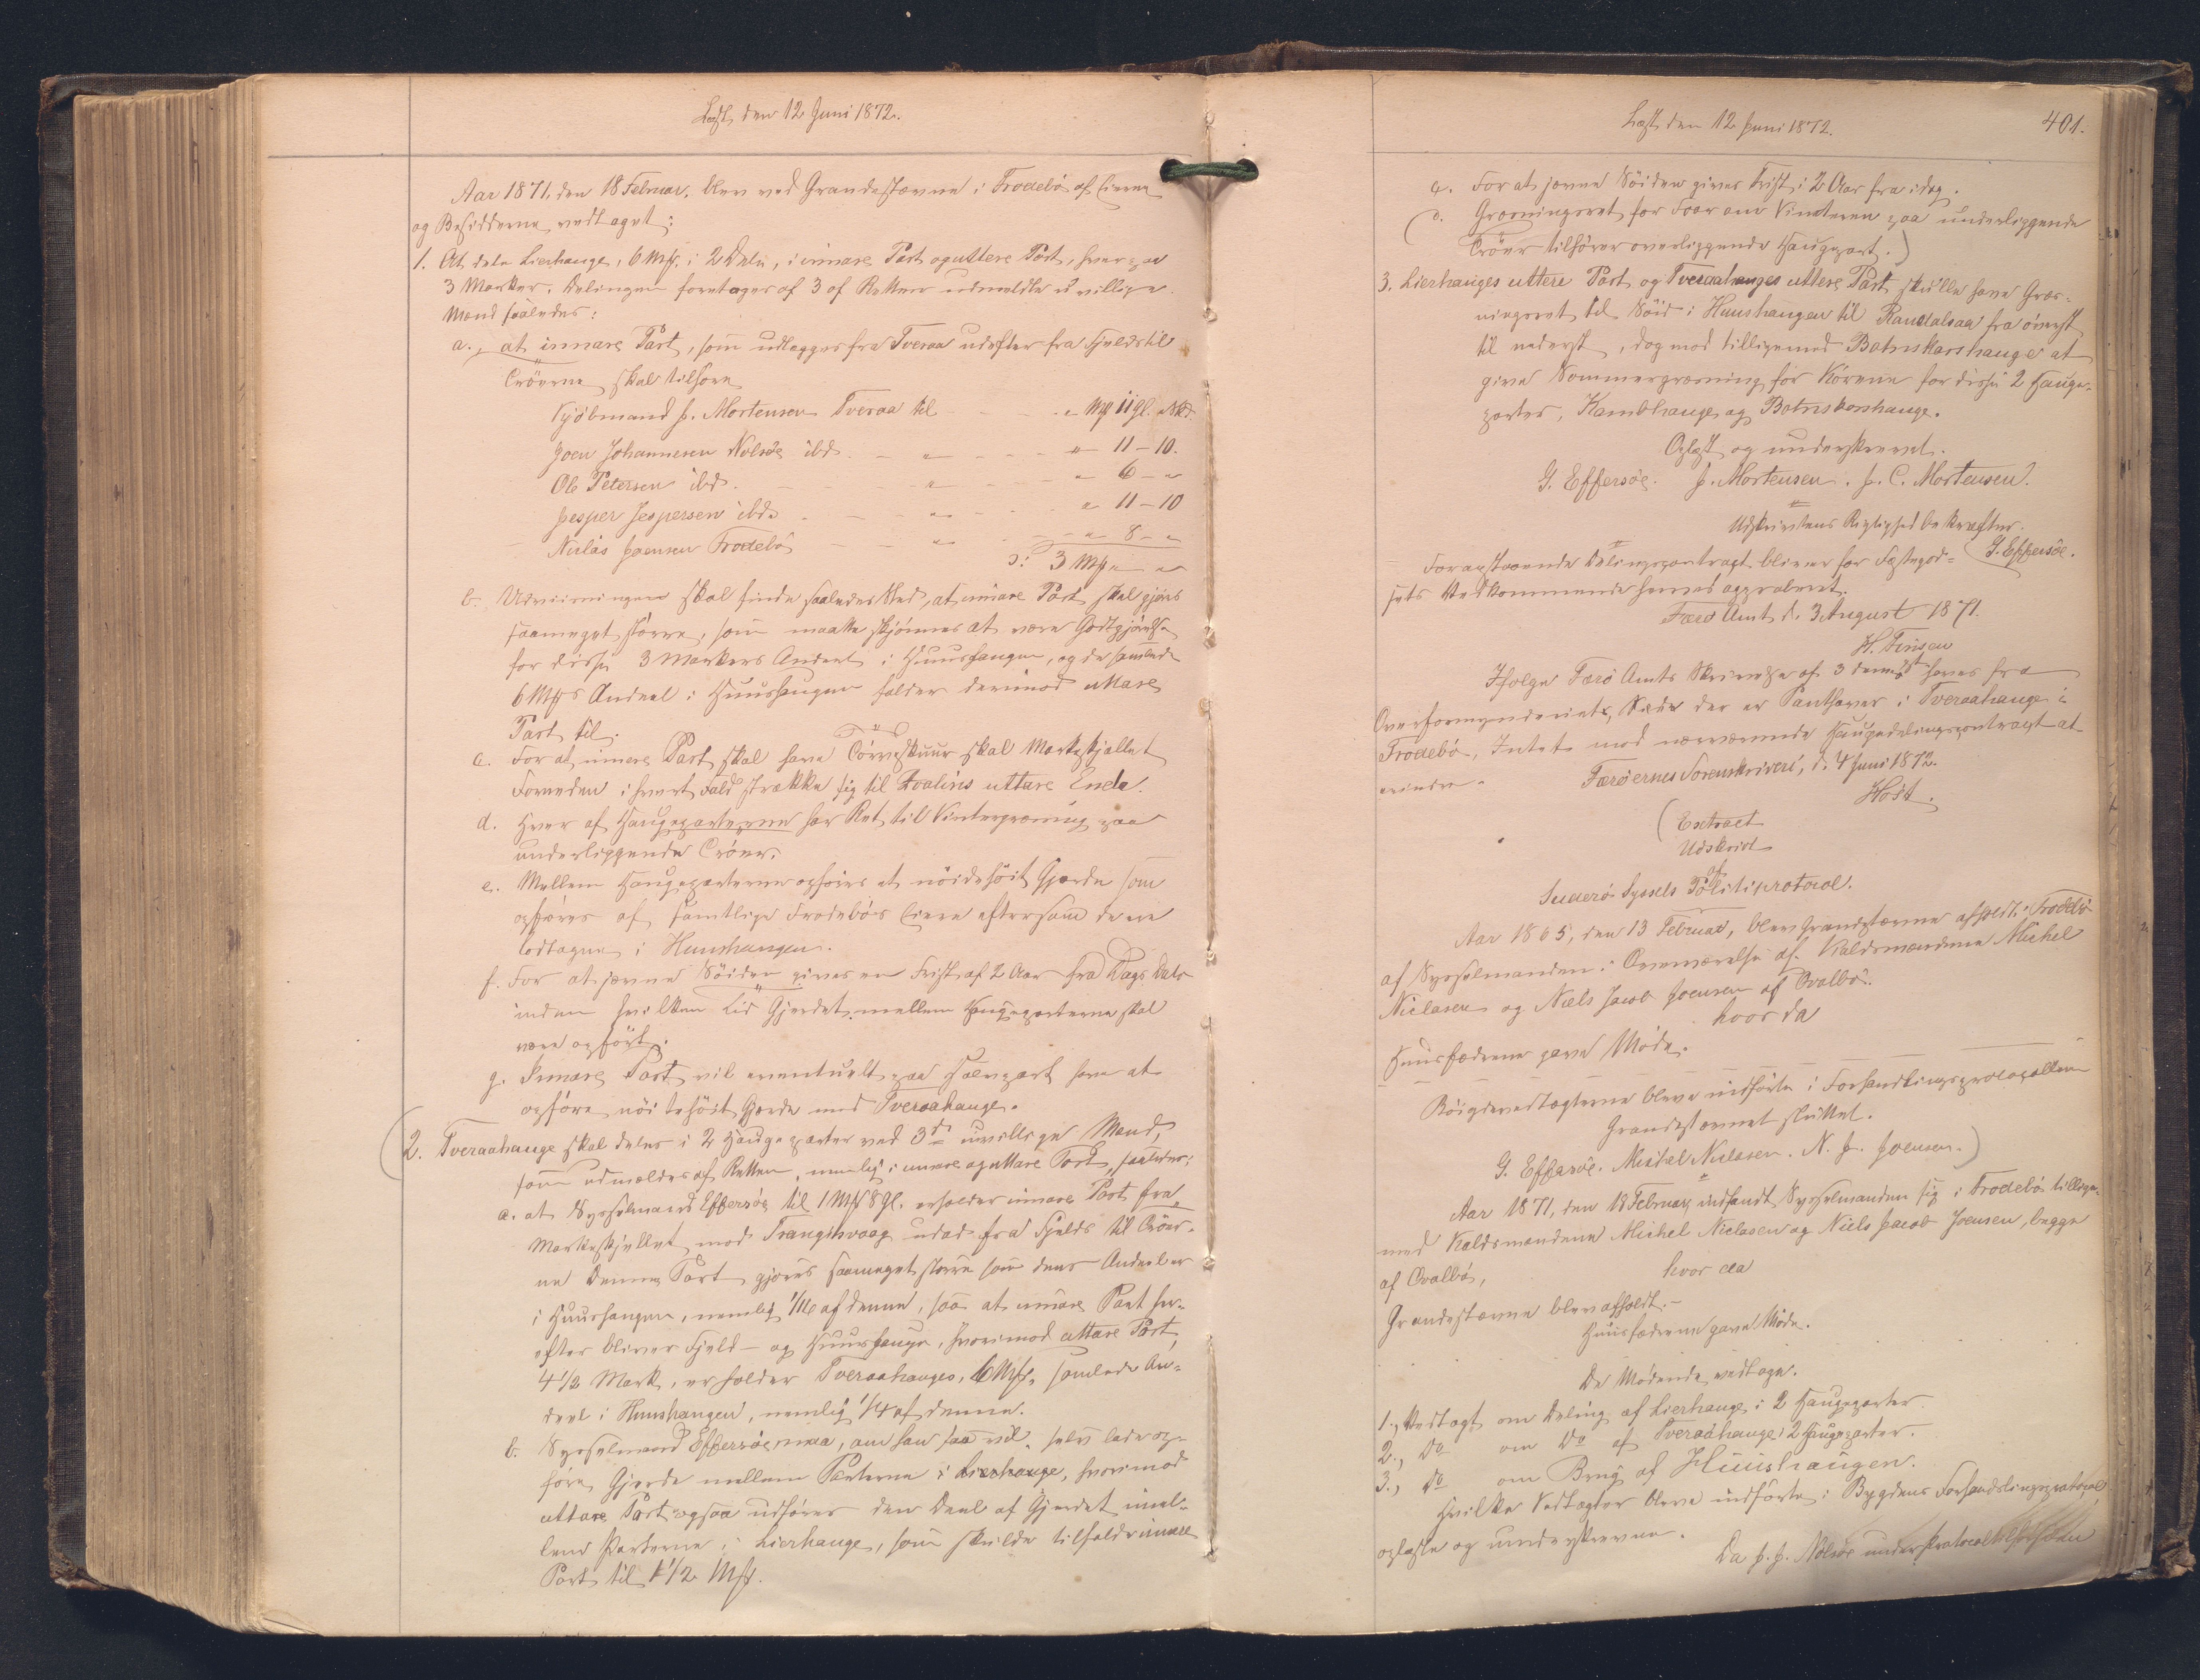 Læst den 12 Juni 1872.
Aar 1871, den 18 Februar, blev ved Grandestævne i Frodebö af Eierne
og Besidderne vedtaget:
1. At dele Lierhauge, 6 Mrk. i 2 Dele, i innare Part og uttere Part, hver paa
3 Marker. Delingen foretages af 3 af Retten udmeldte uvillige
Mænd saaledes:
a., at innare Part, som udlægges fra Tveraa udefter fra Fjelds til
Cröerne skal tilhøre
Kjöbmand J. Mortensen Tveraa til - - " Mrk 11 gl. " Skd.
Joen Johannesen Nolsöe ibd. - " - - " - 11 - 10.
Ole Petersen ibd. - " - - " 6 - "
Jesper Jespersen ibd. - " - - " 11 - 10
Niclas Joensen Frodebö - - " - - " 8 - "
ɔ: 3 Mrk " "
b. Udviisningen skal finde saaledes Sted, at innare Part skal gjöres
saameget større, som maatte skjönnes at være Godtgjörelse
for disse 3 Markers Andeel i Huushaugen, og de samlede
6 Mrks Andeel i Huushaugen falder derimod uttare
Part til.
c. For at innere Part skal have Törveskuur skal Markeskjellet
forneden i hvert Fald strække sig til Dvalins uttare Ende.
d. Hver af Haugeparterne har Ret til Vintergræsning paa
underliggende Cröer.
e. Mellem Haugeparterne opföres et nöidehöit Gjærde som
opföres af samtlige Frodebös Eiere eftersom de ere
lodtagne i Huushaugen.
f. For at jævne Söiden gives en Frist af 2 Aar fra Dags Dato
inden hvilken Tid Gjerdet mellem Haugeparterne skal
være opfört.
g. Innare Part vil eventuelt paa Halvpart have at
opföre nöidehöit Gjerde mod Tveraahauge.
(2. Tveraahauge skal deles i 2 Haugeparter ved 3de uvillige Mænd,
som udmeldes af Retten, nemlig i innare og uttare Part, saaledes:
a. at Sysselmand Effersöe til 1 Mrk 8 gl. erholder innare Part fra
Markeskjellet mod Trangisvaag udad fra Fjelds til Cröer-
ne Denne Part gjöres saameget større som dens Andeel er
i Huushaugen, nemlig 1/16 af denne, saa at innare Part her-
efter bliver Fjeld- og Huushauge, hvorimod uttare Part,
4 1/2 Mark, erholder Tveraahauges, 6 Mrk., samlede An-
deel i Huushaugen, nemlig 1/4 af denne.
b. Sysselmand Effersöe maa, om han saa vil, selv lade op-
före Gjerde mellem Parterne i Lierhauge, hvorimod
uttare Part ogsaa udförer den Deel af Gjerdet imel-
lem Parterne i Lierhauge, som skulde tilfalde innare
Part til 1 1/2 Mrk.
Læst den 12 Juni 1872.
401.
c. For at jævne Söiden gives Frist i 2 Aar fra idag.
(d. Græsningsret for Faar om Vinteren paa underliggende
Cröer tilhörer overliggende Haugepart.)
3. Lierhauges uttere Part og Tveraahauges uttere Part skulle have Græs-
ningsret til Söid i Huushaugen til Randalsaa fra överst
til nederst, dog mod tilligemed Botnskarshauge at
give Sommergræsning for Köerne for disse 2 Hauge-
parter, Kambhauge og Botnskarshauge.
Oplæst og underskrevet.
G. Effersöe. J. Mortensen. J. C. Mortensen.
Udskriftens Rigtighed bekræftes.
G. Effersöe.
Foranstaaende Delingscontract bliver for Fæstegod-
sets Vedkommende herved approberet.
Færö Amt d. 3 August 1871.
H. Finsen
Ifølge Færö Amts Skrivelse af 3 dennes haves fra
Overformynderiets Side der er Panthaver i Tveraahauge i
Frodebö, Intet mod nærværende Haugedelingscontract at
erindre.
Færöernes Sorenskriveri, d. 4 Juni 1872.
Höst.
(Extract
Udskrivt
af
Suderö Syssels Politiprotocol.
Aar 1865, den 13 Februar, blev Grandestævne afholdt i Frodebö
af Sysselmanden i Overværelse af Valdsmændene Michel
Niclasen og Niels Jacob Joensen af Qvalbö.
hvor da
Huusfædrene gave Möde.
Böigdevedtægterne bleve indförte i Forhandlingsprotocollen
Grandestævnet sluttet.
G. Effersöe. Michel Niclasen. N. J. Joensen.)
Aar 1871, den 18 Februar, indfandt Sysselmanden sig i Frodebö tillige-
med Valdsmændene Michel Niclasen og Niels Jacob Joensen, begge
af Qvalbö,
hvor da
Grandestævne blev afholdt. -
Huusfædrene gave Möde.
De Mödende vedtoge.
1., Vedtægt om Deling af Lierhauge i 2 Haugeparter.
2., Do om Do af Tveraahauge i 2 Haugeparter.
3., Do om Brug af Huushaugen.
Hvilke Vedtægter bleve indförte i Bygdens Forhandlingsprotocol
oplæste og underskrevne.
Da J. J. Nolsöe under Protocoltilförselen